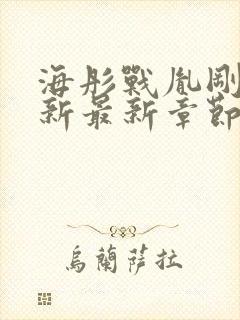 海彤戰胤剛
新最新章節
烏蘭薩拉